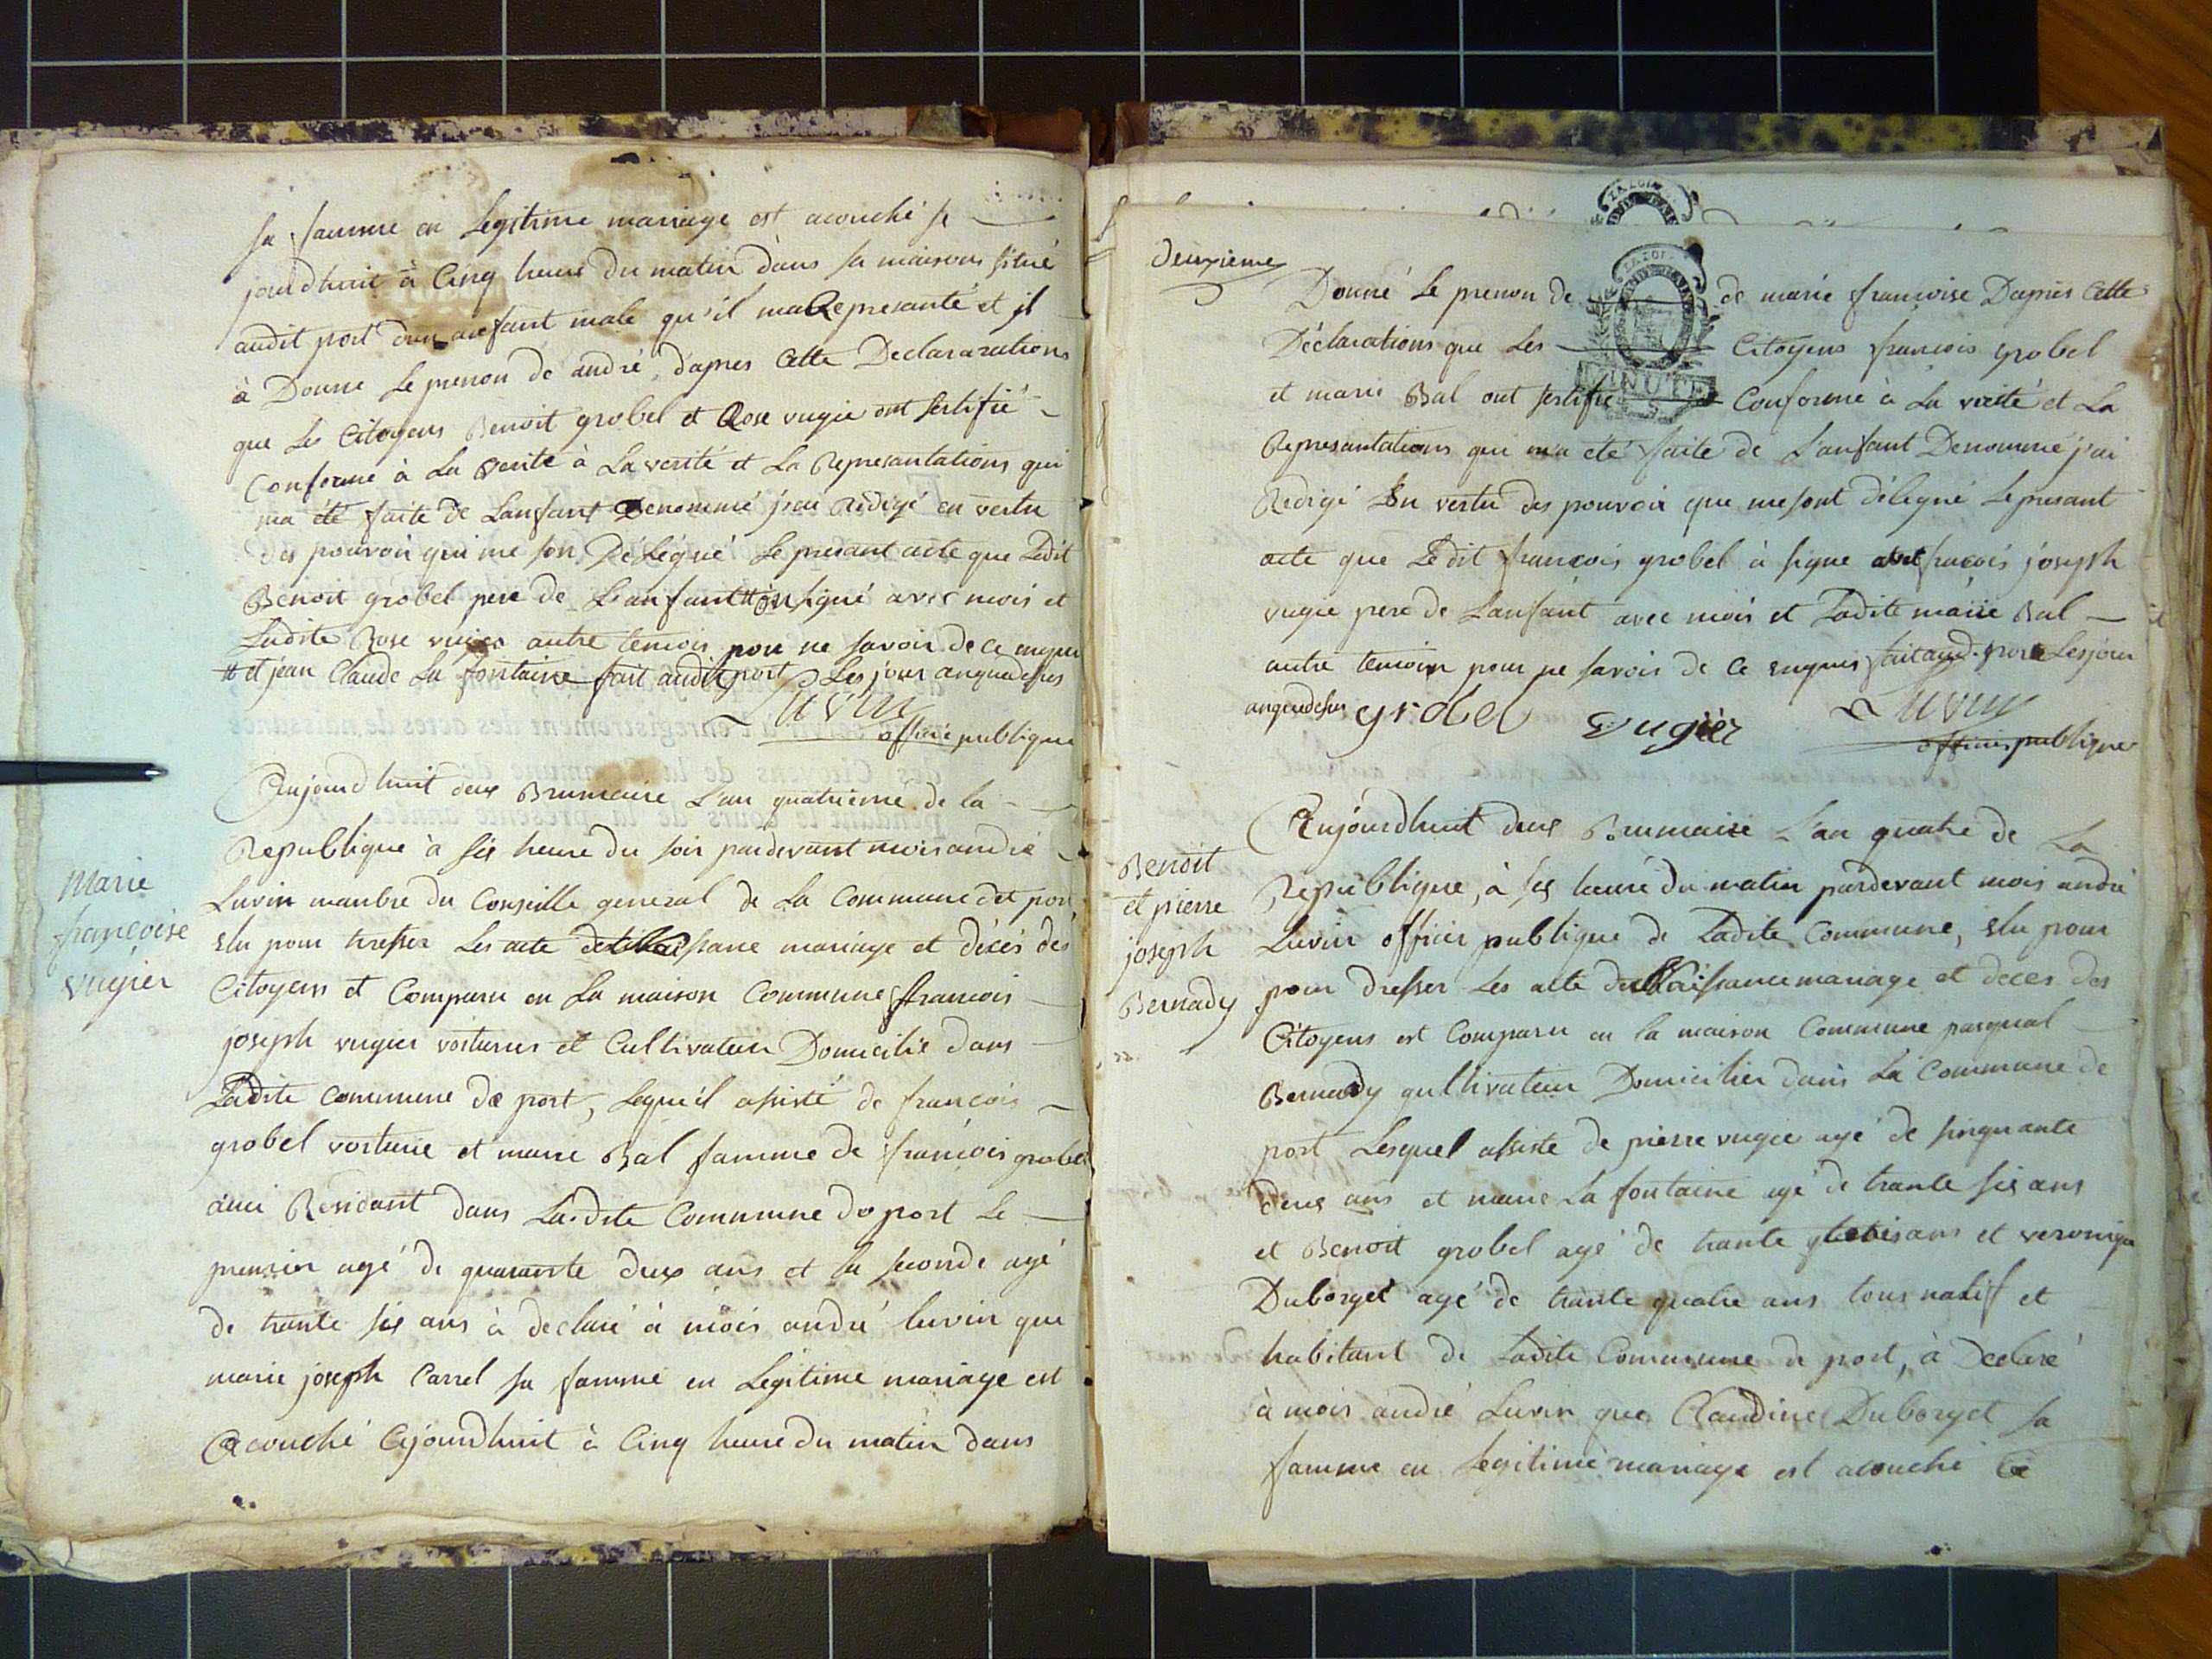 sa famme en Legitime mariage est acouché se
jourdhuit à Cinq heure du matin dans sa maisons situé
audit port d'un anfant male qu'il ma Represanté et il
à Donne Le prenon de andré, d'apres Cette Declararations
que Les Citoyens Benoit grobel et Rose vugie ont sertifié
Conforme à La verite à La verité et La Represantations qui
ma été faite de Lanfant Denommé j'ai Redigé en vertu
des pouvoir qui me son Délégué Le presant acte que Ledit
Benoit grobel pere de L'anfant # on signé avec mois et
Ladite Rose vugier autre temois pour ne savoir de ce enquis
# et jean Claude La fontaine fait audit port Les jour anquedesus
Luvin
officié publique
Marie
françoise
vugier
Aujourdhuit deux Brumaire L'an quatrieme de la
Republique à sis heure du soir pardevant mois andré
Luvin manbre du Conseille general de La Commune det port
elu pour dresser Les acte de Naissance mariage et décés des
Citoyens et Comparu en La maison Commune francois
joseph vugier voiturier et Cultivateur Domicilié dans
Ladite Commune de port, Lequél asisté de francois
grobel voiturie et marie Bal famme de francois grobel
aussi Residant dans Ladite Commune de port Le
premier agé de quarante deux ans et la seconde agé
de trante sis ans à declaré à mois andré luvin que
marie joseph Carrel sa famme en Légitime mariage est
Acouché Cejourdhuit à Cinq heure du matin dans
deuxieme
Donné Le prenon de de marie francoise Dapres Cette
Déclarations que Les Citoyens francois grobel
et marie Bal ont sertifié Conforme à La verité et La
MINUTE
Represantations qui m'a été faite de L'anfant Denommé j'ai
Redigé En vertu des pouvoir que me sont délegué Le presant
acte que Ledit francois grobel à signe avec fracois joseph
vugie pere de Lanfant avec mois et Ladite marie Bal
autre temoin pour ne savoir de ce enquis fait aud. port Les jour
anquedesus grobel vugier Luvin
officié publique
Benoit
et pierre
joseph
Bernady
Aujourdhuit deux Brumaire L'an quatre de La
Republique, à sis heure du matin pardevant mois andré
Luvin officier publique de Ladite Commune, elu pour
pour dresser Les acte de Naissance mariage et deces des
Citoyens est Comparu en la maison Commune pasqual
Bernady qultivateur Domicilier dans La Commune de
port Lesquel assiste de pierre vugie agé de sinquante
deux ans et marie La fontaine agé de trante sis ans
et Benoit grobel agé de trante ans et veronique
Duborget agé de trante quatre ans tous natif et
habitant de Ladite Commune de port, à Declaré
à mois andré Luvin que Claudine Duborget sa
famme en Legitime mariage est acouché Ce